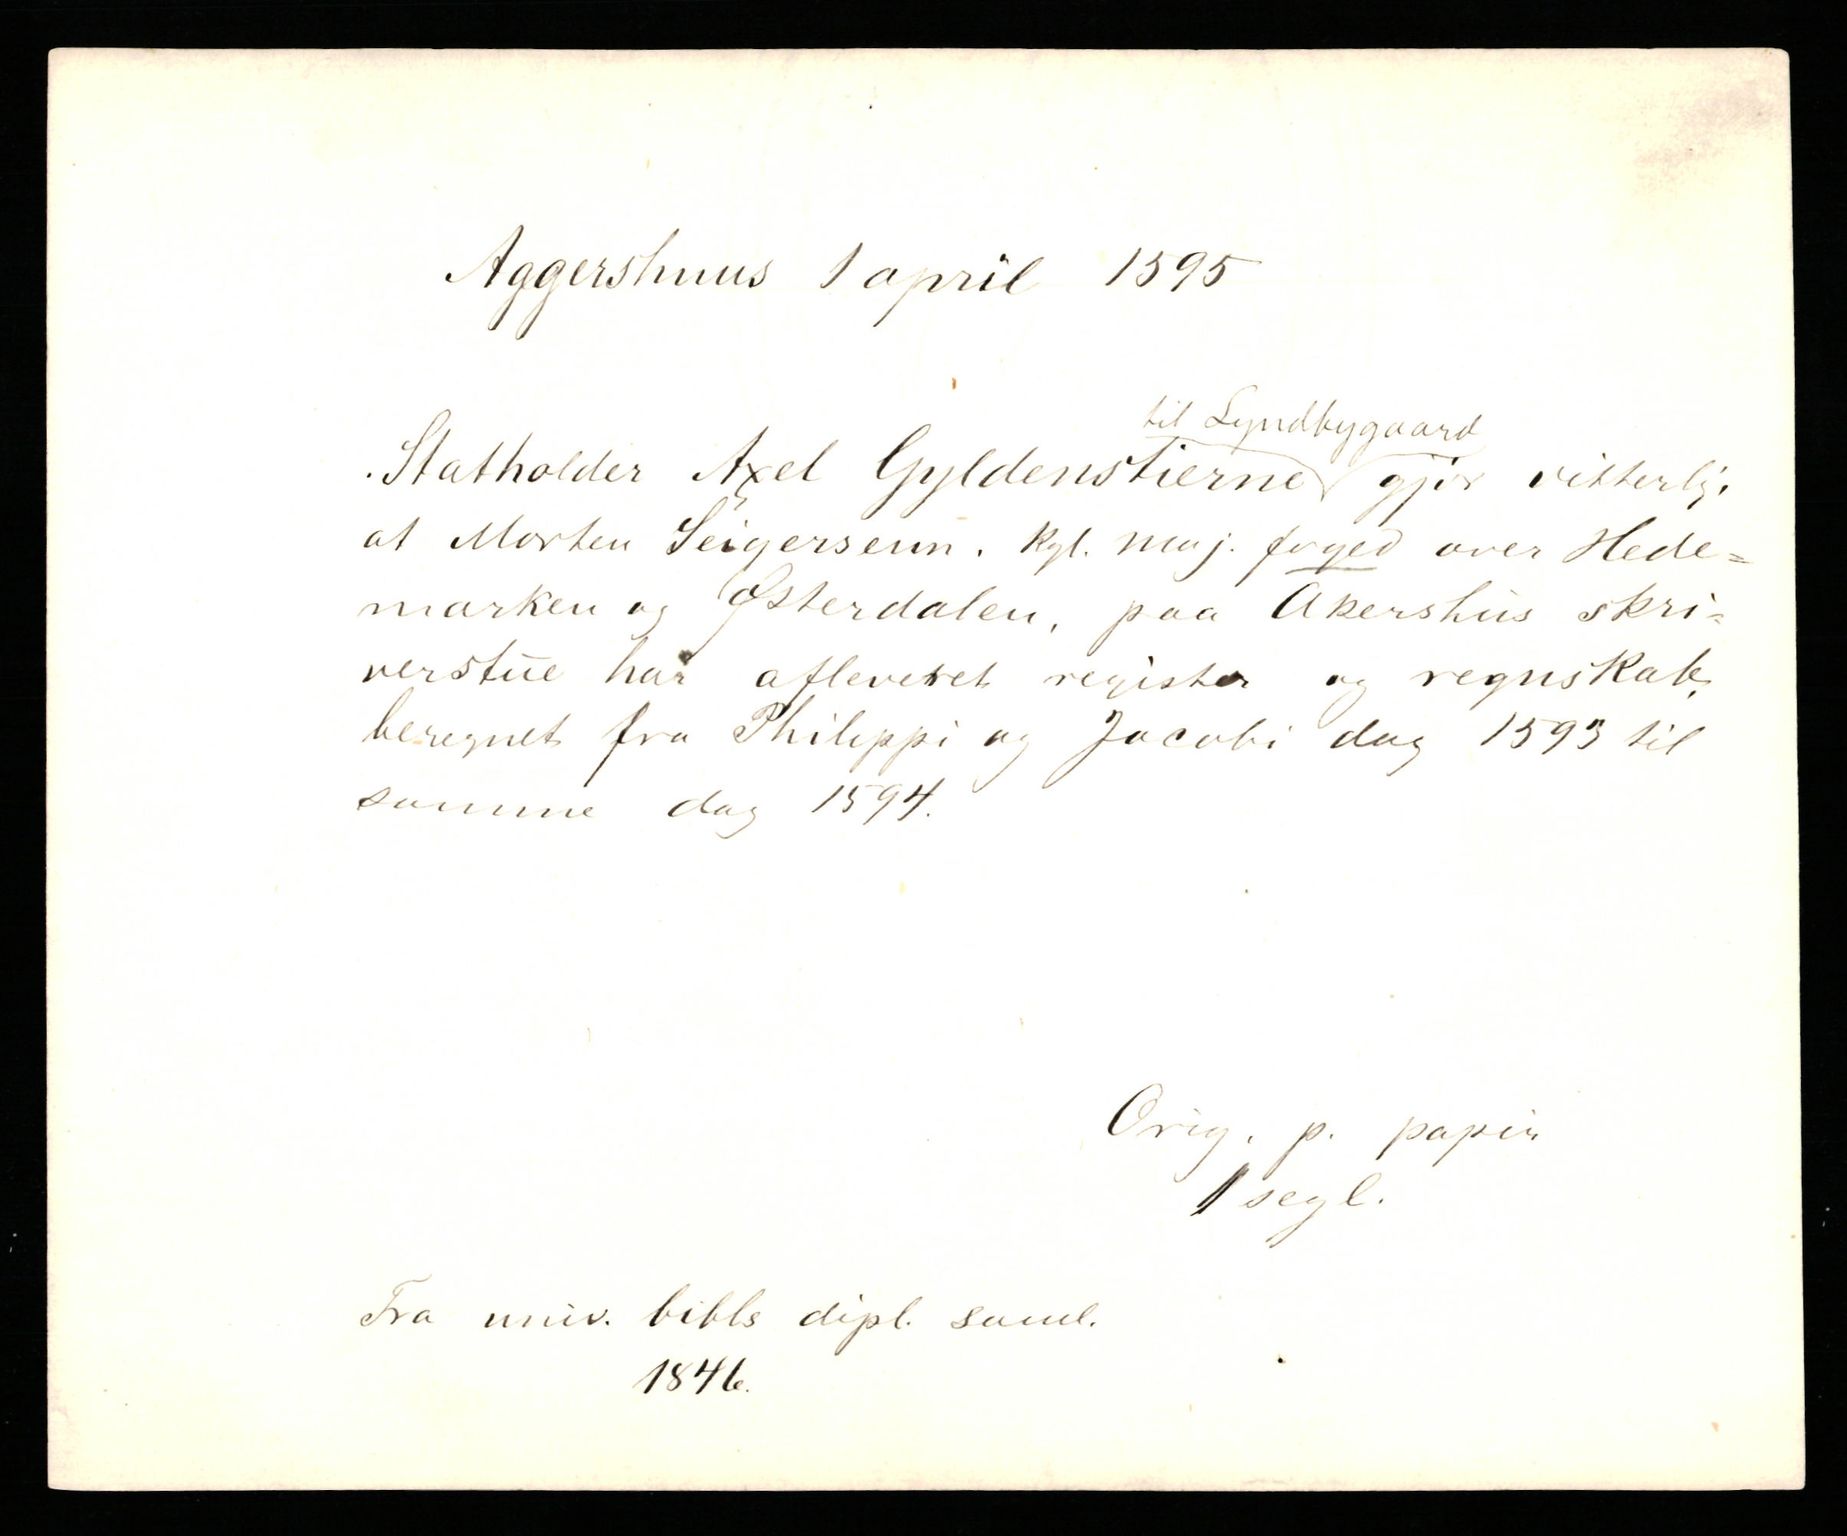 Aggershuus 1 april 1595
til Lyndbygaard
Statholder Axel Gyldenstierne gjør vitterlig,
at Morten Seigersenn, kgl. maj. foged over Hede=
marken og Østerdalen, paa Akershus skri=
verstue har afleveret register og regnskab,
beregnet fra Philippi og Jacobi dag 1593 til
samme dag 1594.
Orig. p. papir
1 segl.
Fra univ. bibls dipl. saml.
1846.